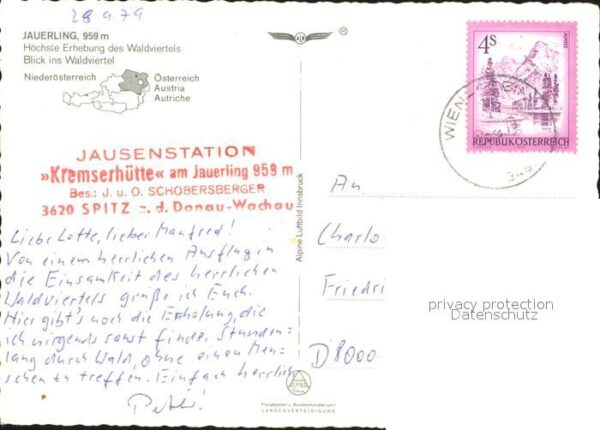 28 9.79
JAUERLING, 959 m
Höchste Erhebung des Waldviertels
Blick ins Waldviertel
Niederösterreich
Österreich
Austria
Autriche
®
4S
REPUBLIK ÖSTERREICH
WIEN
JAUSENSTATION
»Kremserhütte« am Jauerling 959 m
Bes.: J. u. O. SCHOBERSBERGER
3620 SPITZ a. d. Donau-Wachau
Liebe Lotte, lieber Manfred!
Von einem herrlichen Ausflug in
die Einsamkeit des herrlichen
Waldviertels grüße ich Euch.
Hier gibt's noch die Erholung, die
ich nirgends sonst finde. Stunden=
lang durch Wald, ohne einen Men-
schen zu treffen. Einfach herrlich
Peter!
Alpine Luftbild Innsbruck
An
Charlo
Friedri
D8000
privacy protection
Datenschutz
Freigegeben v. Bundesministerium f.
LANDESVERTEIDIGUNG